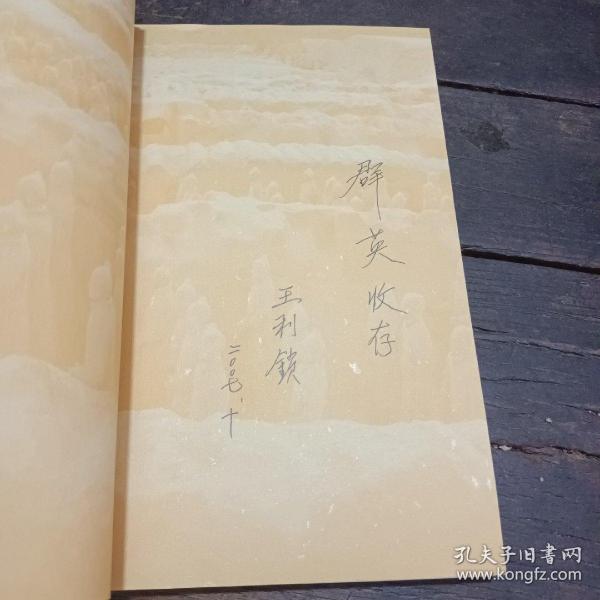 群英收存
王利鎖
二〇〇七、十
孔夫子旧書网
www.kongfz.com